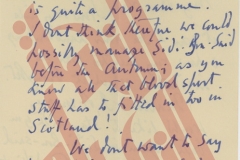 is quite a programme.
I don't think therefore we could
possibly manage Sidi-Bou-Said
before the Autumn; as you
know all that blood sport
stuff has to fitted in too in
Scotland!
We don't want to say